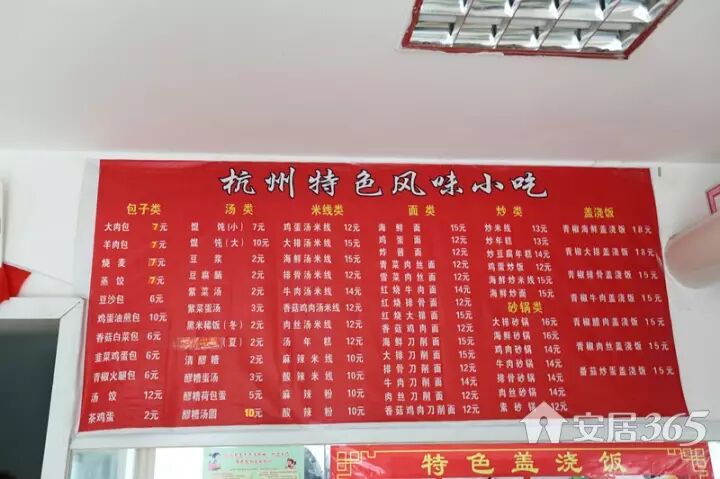 杭州特色风味小吃
包子类
大肉包 7元
羊肉包 7元
烧麦 7元
蒸饺 7元
豆沙包 6元
鸡蛋油煎包 10元
香菇白菜包 6元
韭菜鸡蛋包 6元
青椒火腿包 6元
汤饺 12元
茶鸡蛋 2元
汤类
馄饨(小) 7元
馄饨(大) 10元
豆浆 2元
豆腐脑 2元
紫菜汤 2元
紫菜蛋汤 3元
黑米稀饭(冬) 2元
(夏) 2元
清醪糟 2元
醪糟蛋汤 3元
醪糟荷包蛋 5元
醪糟汤圆 10元
米线类
鸡蛋汤米线 12元
大排汤米线 15元
海鲜汤米线 15元
排骨汤米线 15元
牛肉汤米线 14元
香菇鸡肉汤米线 12元
肉丝汤米线 12元
汤年糕 12元
麻辣米线 10元
酸辣米线 10元
麻辣粉 10元
酸辣粉 10元
面类
海鲜面 15元
鸡蛋面 12元
炸酱面 12元
青菜肉丝面 12元
雪菜肉丝面 12元
红烧牛肉面 14元
红烧排骨面 15元
香菇鸡肉面 12元
海鲜刀削面 15元
大排刀削面 15元
排骨刀削面 15元
牛肉刀削面 14元
肉丝刀削面 12元
香菇鸡肉刀削面 12元
炒类
炒米线 13元
炒年糕 13元
炒豆腐年糕 14元
鸡蛋炒饭 12元
海鲜炒米线 15元
海鲜炒面 15元
砂锅类
大排砂锅 16元
海鲜砂锅 16元
鸡肉砂锅 14元
牛肉砂锅 14元
排骨砂锅 14元
肉丝砂锅 14元
素砂锅 12元
盖浇饭
青椒海鲜盖浇饭 18元
青椒大排盖浇饭 15元
青椒排骨盖浇饭 15元
青椒牛肉盖浇饭 15元
青椒腊肉盖浇饭 15元
青椒肉丝盖浇饭 15元
番茄炒蛋盖浇饭 15元
安居365
特色盖浇饭